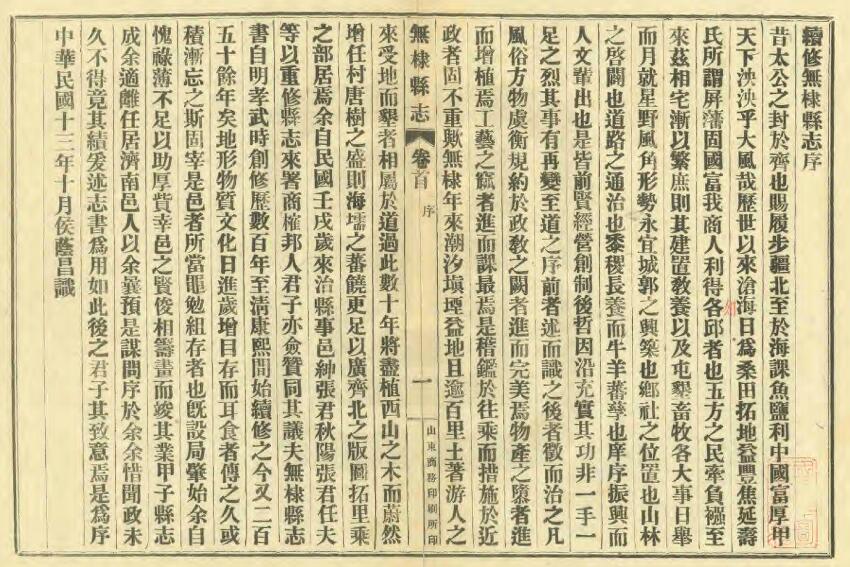 續修無棣縣志序
昔太公之封於齊也賜履步疆北至於海課魚鹽利中國富厚甲
天下泱泱乎大風哉歷世以來滄海日為桑田拓地益豐焦延壽
氏所謂屏藩固國富我商人利得各邱者也五方之民牽負襁至
來茲相宅漸以繁庶則其建置教養以及屯墾畜牧各大事日舉
而月就星野風角形勢永宜城郭之興築也鄉社之位置也山林
之啓闢也道路之通治也黍稷長養而牛羊蕃孳也庠序振興而
人文輩出也是皆前賢經營創制後哲因沿充實其功非一手一
足之烈其事有再變至道之序前者述而識之後者徵而治之凡
風俗方物虞衡規約於政敎之闕者進而完美焉物產之墮者進
而增植焉工藝之窳者進而課最焉是稽鑑於往乘而措施於近
政者固不重歟無棣年來潮汐塡堙益地且逾百里土著游人之
無棣縣志
卷首
序
一
山東商務印刷所印
來受地而墾者相屬於道過此數十年將盡植西山之木而蔚然
增任村唐樹之盛則海壖之蕃饒更足以廣齊北之版圖拓里乘
之部居焉余自民國壬戌歲來治縣事邑紳張君秋陽張君任夫
等以重修縣志來署商榷邦人君子亦僉贊同其議夫無棣縣志
書自明孝武時創修歷數百年至清康熙間始續修之今又二百
五十餘年矣地形物質文化日進歲增目存而耳食者傳之久或
積漸忘之斯固宰是邑者所當黽勉組存者也旣設局肇始余自
愧祿薄不足以助厚貲幸邑之賢俊相籌畫而竣其業甲子縣志
成余適離任居濟南邑人以余曩預是謀問序於余余惜聞政未
久不得竟其績爰述志書爲用如此後之君子其致意焉是爲序
中華民國十三年十月侯蔭昌識